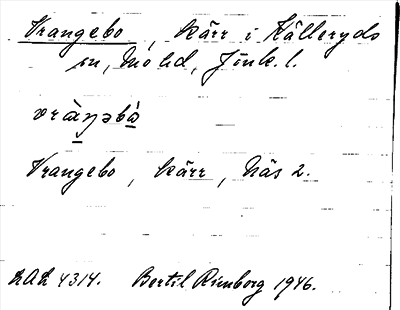 Vrangebo, kärr i Källeryds
sn, Mo hd, Jönk. l.
vràŋəbá
Vrangebo, kärr, Näs 2.
LAL 4314. Bertil Rimborg 1946.